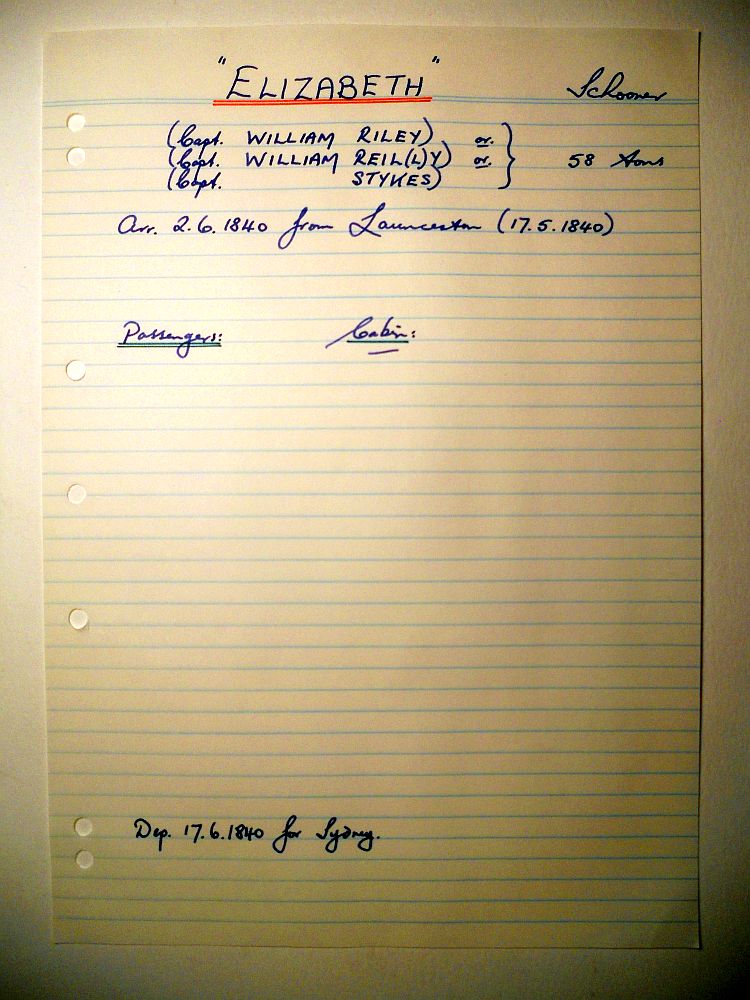 "ELIZABETH" Schooner
(Capt. WILLIAM RILEY) or. }
(Capt. WILLIAM REIL(L)Y) or. } 58 tons
(Capt. STYKES) }
Arr. 2.6.1840 from Launceston (17.5.1840)
Passengers: Cabin:
Dep. 17.6.1840 for Sydney.